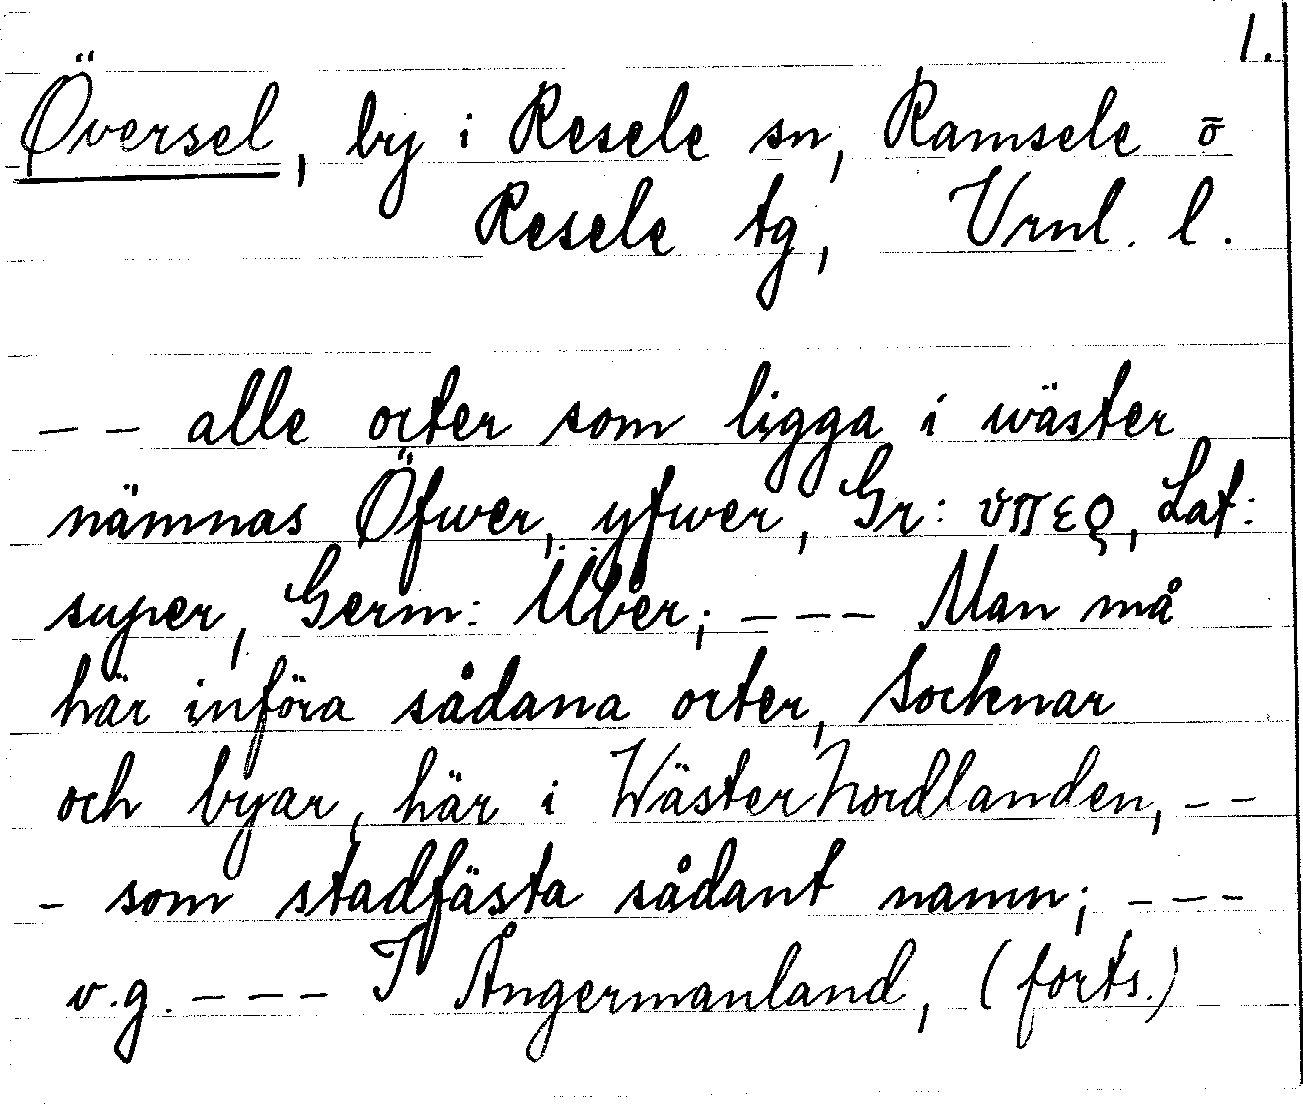 1.
Översel, by i Resele sn, Ramsele o
Resele tg, Vrnl. l.
- - alle orter som ligga i wäster
nämnas Öfwer, yfwer, Gr: ὑπερ, Lat:
super, Germ: Über; - - - Man må
här införa sådana orter, Socknar
och byar, här i WästerNordlanden, - -
- som stadfästa sådant namn; - - -
v.g. - - - I Ångermanland, (forts.)